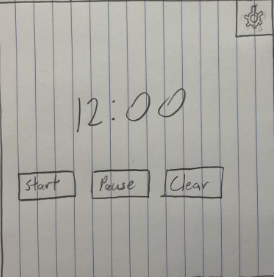 12:00
Start Pause Clear